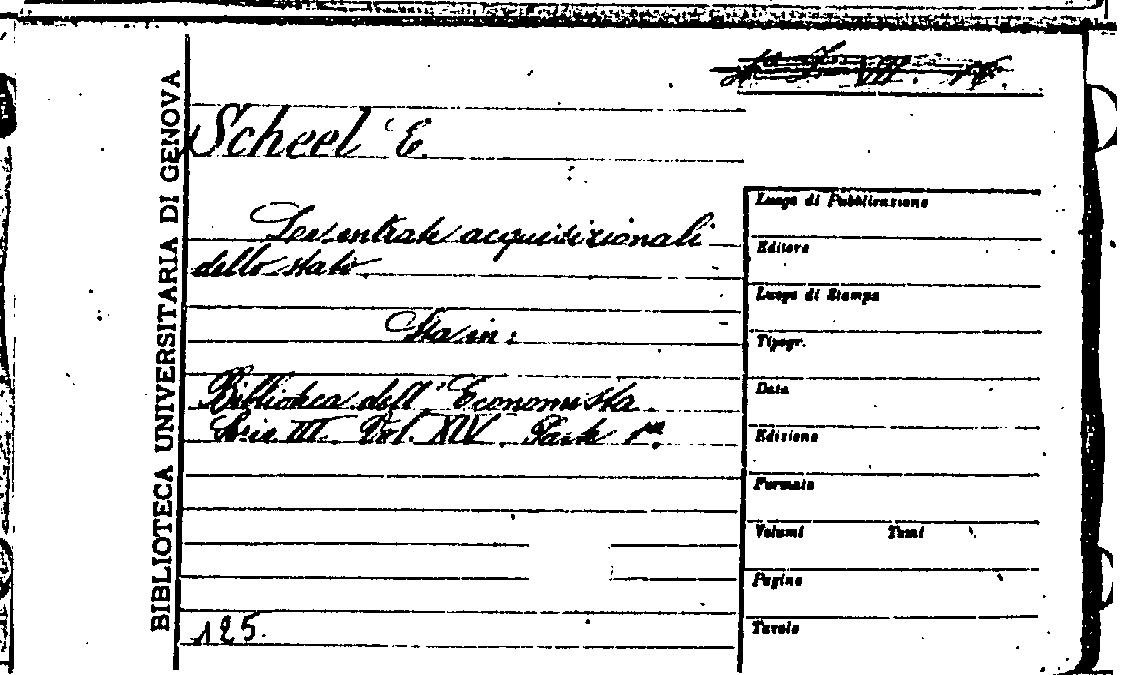 BIBLIOTECA UNIVERSITARIA DI GENOVA
Scheel E.
Le entrate acquisizionali
dello stato
Sta in:
Biblioteca dell' Economista
Serie III. Vol. XIV. Parte 1ª
125.
Luogo di Pubblicazione
Editore
Luogo di Stampa
Tipogr.
Data
Edizione
Formato
Volumi Tomi
Pagine
Tavole